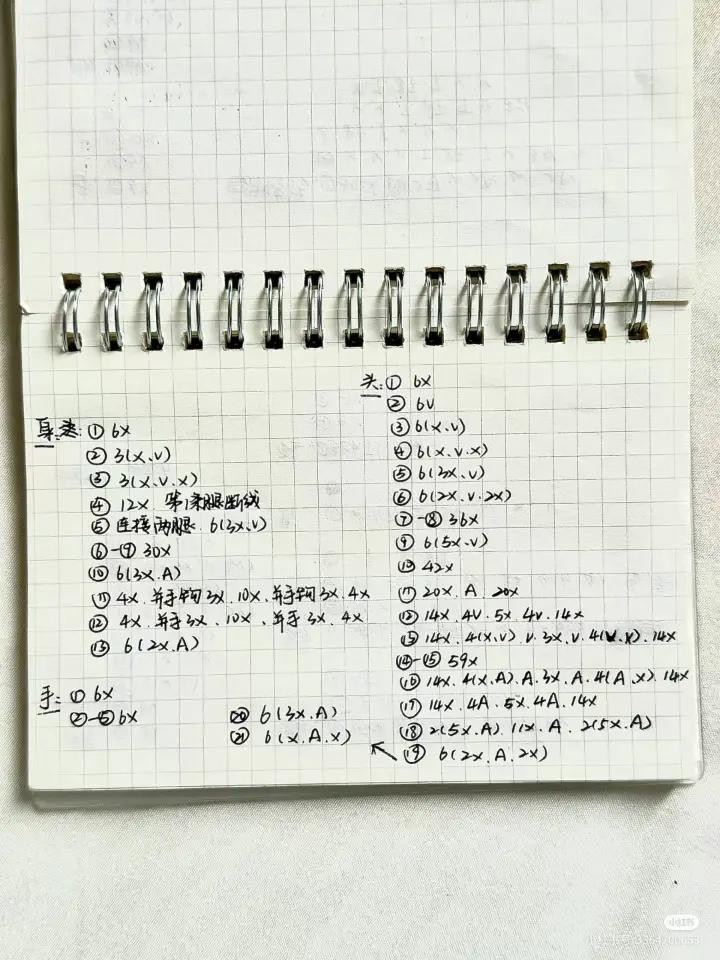 身
① 6x
② 3(x.v)
③ 3(x.v.x)
④ 12x. 第1条腿断线
⑤ 连接两腿. 6(3x.v)
⑥-⑨ 30x
⑩ 6(3x.A)
⑪ 4x.并手钩3x.10x.并手钩3x.4x
⑫ 4x.并手3x.10x.并手3x.4x
⑬ 6(2x.A)
手: ① 6x
②-⑤ 6x
头: ① 6x
② 6v
③ 6(x.v)
④ 6(x.v.x)
⑤ 6(3x.v)
⑥ 6(2x.v.2x)
⑦-⑧ 36x
⑨ 6(5x.v)
⑩ 42x
⑪ 20x.A.20x
⑫ 14x.4v.5x.4v.14x
⑬ 14x.4(x.v).v.3x.v.4(v.x).14x
⑭-⑮ 59x
⑯ 14x.4(x.A).A.3x.A.4(A.x).14x
⑰ 14x.4A.5x.4A.14x
⑱ 2(5x.A).11x.A.2(5x.A)
⑲ 6(2x.A.2x)
⑳ 6(3x.A)
㉑ 6(x.A.x)
小红书